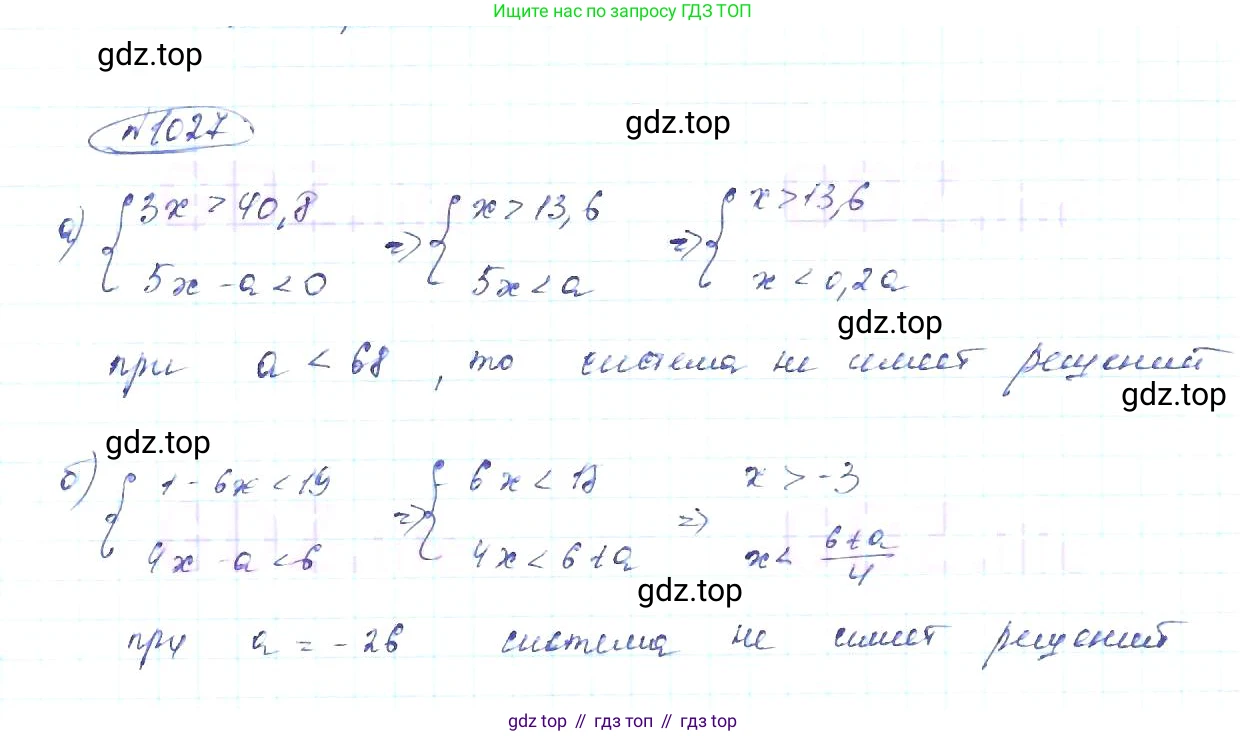 Ищите нас по запросу ГДЗ ТОП
gdz.top
№1027
gdz.top
а) { 3x > 40,8 => { x > 13,6 => { x > 13,6
5x - a < 0 5x < a x < 0,2a
gdz.top
при a < 68, то система не имеет решений
gdz.top
gdz.top
б) { 1 - 6x < 19 => { 6x < 18 => x > -3
4x - a < 6 4x < 6 + a x < (6+a)/4
gdz.top
при a = -26 система не имеет решений
gdz top // гдз топ // gdz top